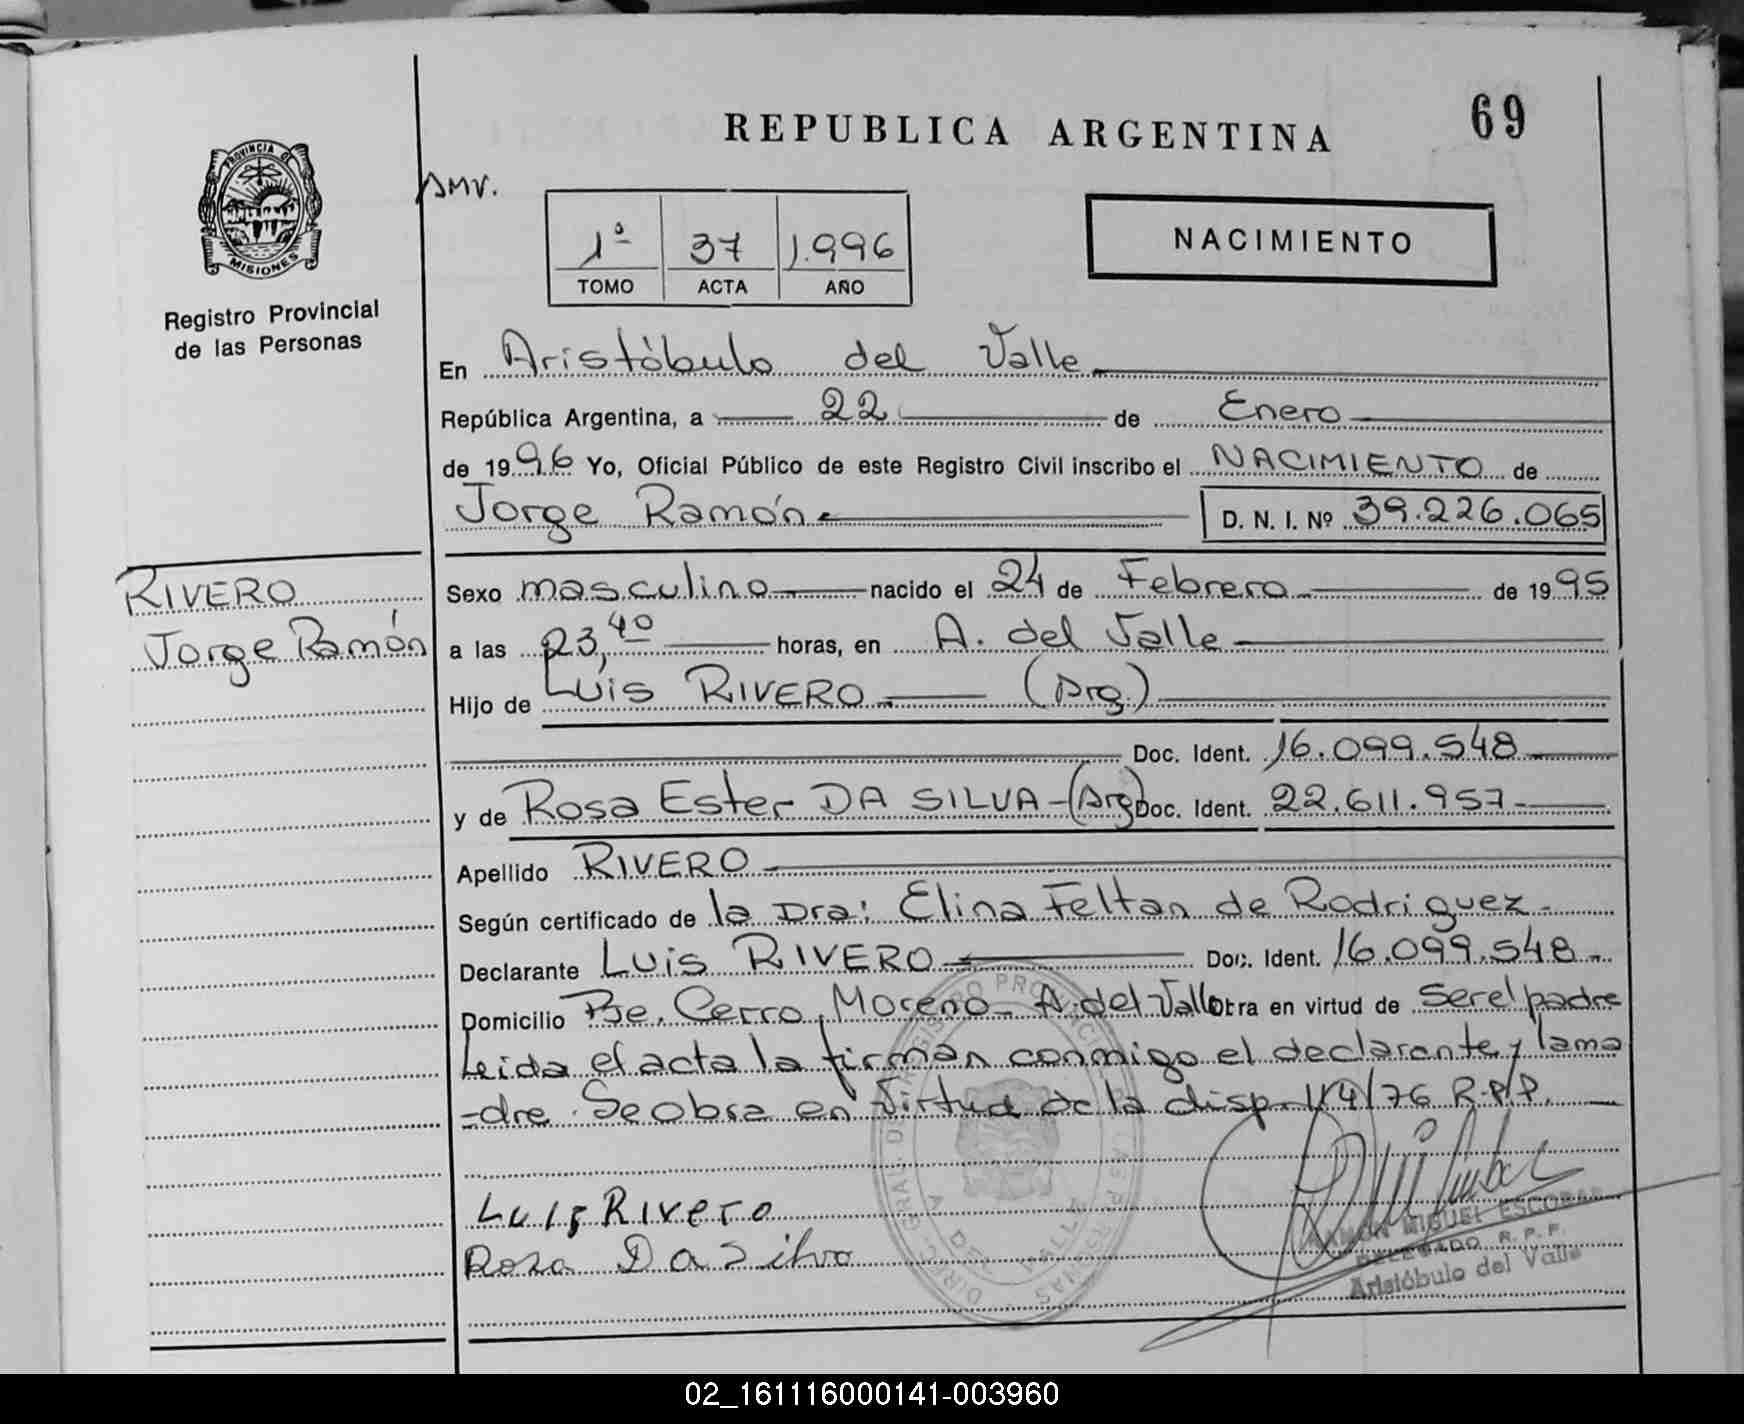 REPUBLICA ARGENTINA
69
PROVINCIA DE
MISIONES
Registro Provincial
de las Personas
AMV.
1ª 37 1.996
TOMO ACTA AÑO
NACIMIENTO
En Aristóbulo del Valle
República Argentina, a 22 de Enero
de 1996 Yo, Oficial Público de este Registro Civil inscribo el NACIMIENTO de
Jorge Ramón
D. N. I. Nº 39.226.065
RIVERO
Jorge Ramón
Sexo masculino nacido el 24 de Febrero de 1995
a las 23,40 horas, en A. del Valle
Hijo de Luis RIVERO (Arg.)
Doc. Ident. 16.099.548
y de Rosa Ester DA SILVA-(Arg) Doc. Ident. 22.611.957-
Apellido RIVERO
Según certificado de la Dra: Elina Feltan de Rodriguez-
Declarante Luis RIVERO Doc. Ident. 16.099.548-
Domicilio Pje. Cerro Moreno- A. del Valle Obra en virtud de Ser el padre
Leida el acta la firman conmigo el declarante y la ma
-dre. Se obra en virtud de la disp. R.P.P.
Luis Rivero
Rosa Da Silva
RAMON MIGUEL ESCOBAR
DELEGADO R. P. P.
Aristóbulo del Valle
02_161116000141-003960